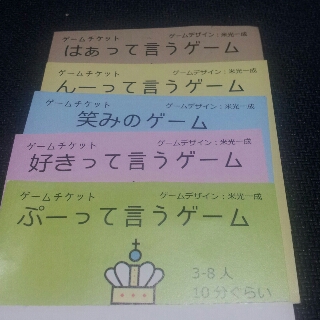 ゲームチケット ゲームデザイン：米光一成
はぁって言うゲーム
ゲームチケット ゲームデザイン：米光一成
んーって言うゲーム
ゲームチケット ゲームデザイン：米光一成
笑みのゲーム
ゲームチケット ゲームデザイン：米光一成
好きって言うゲーム
ゲームチケット ゲームデザイン：米光一成
ぷーって言うゲーム
3-8人
10分ぐらい